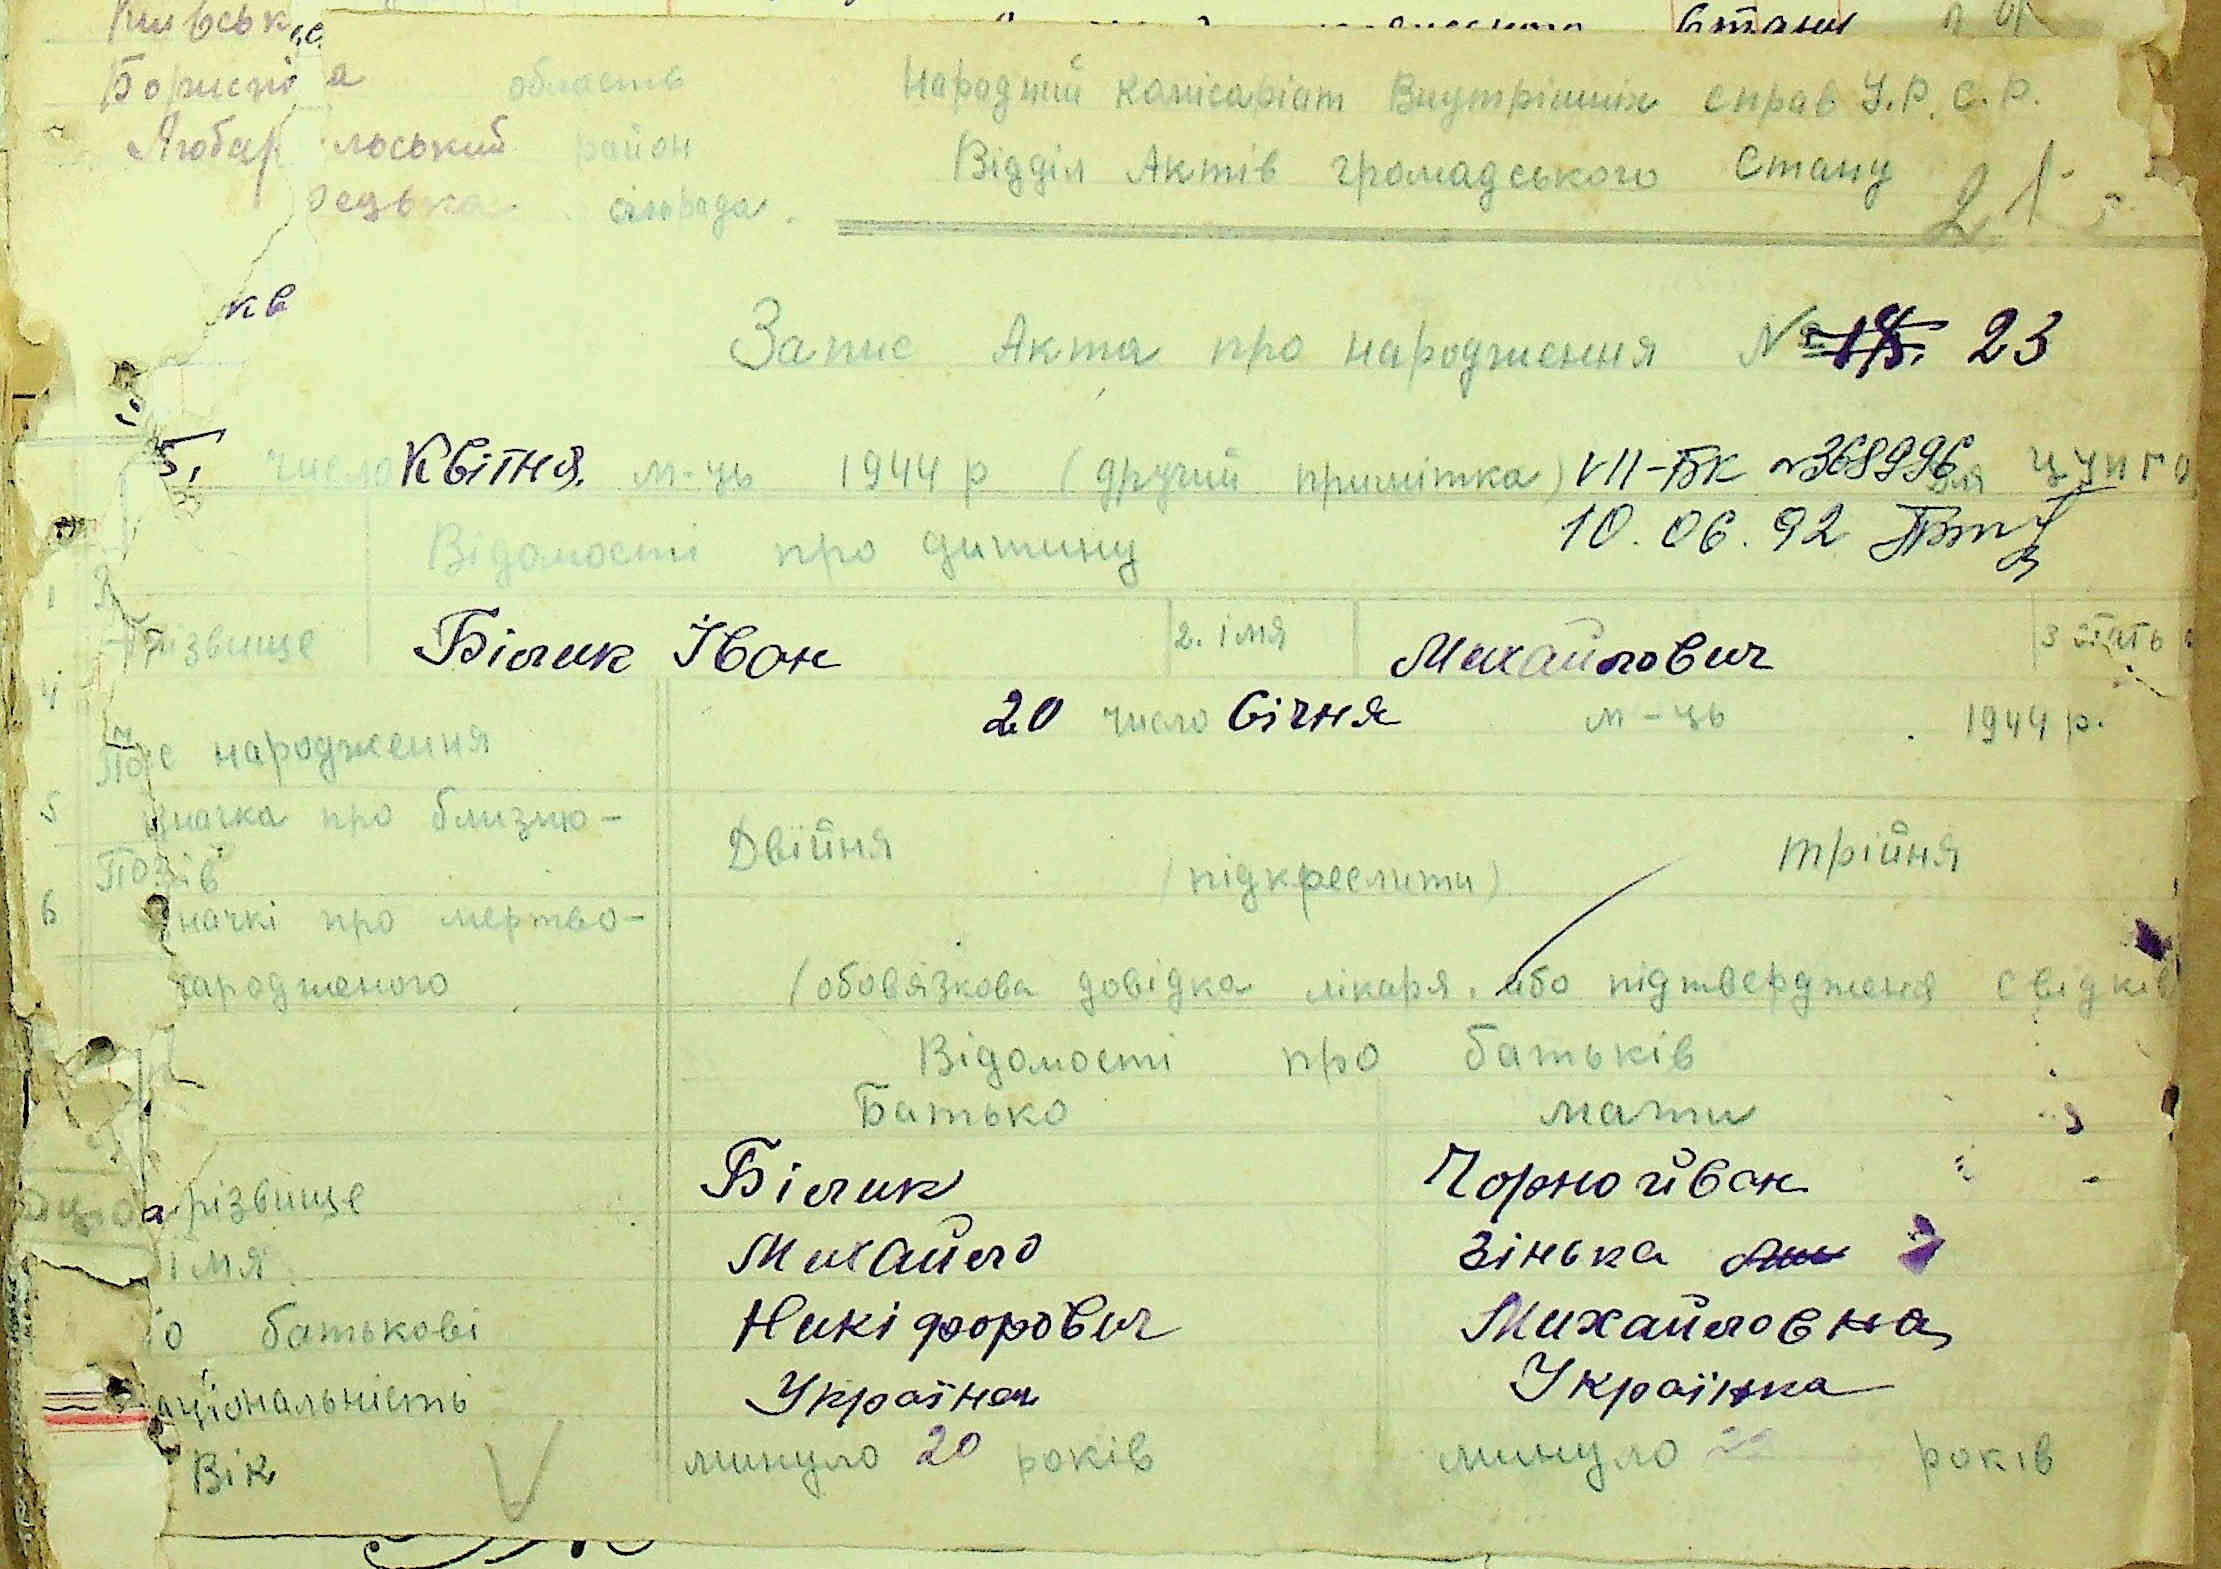 Київськ
Стану
Бориспі а область Народний комісаріат Внутрішніх справ У.Р.С.Р.
Любар льський район Відділ Актів громадського Стану
рецька сільрада. 21
кв
Запис Акта про народження № 23
5, число Квітня. м-ць 1944 р (другий примітка) VII-БК №368996 для цунго
10.06.92
Відомості про дитину
1 Прізвище Білик Іван 2. імя Михайлович 3 стать
4 20 число Січня м-ць 1944 р.
народження
5 значка про близню- Двійня (підкреслити) трійня
6 начкі про мертво-
народженого (обовязкова довідка лікаря, або підтвердженя свідків
Відомості про батьків
Батько мати
різвище Білик Чорнойван
імя Михайло Зінька
о батькові Никіфорович Михайловна
аціональність Українец Українка
Вік минуло 20 років минуло років